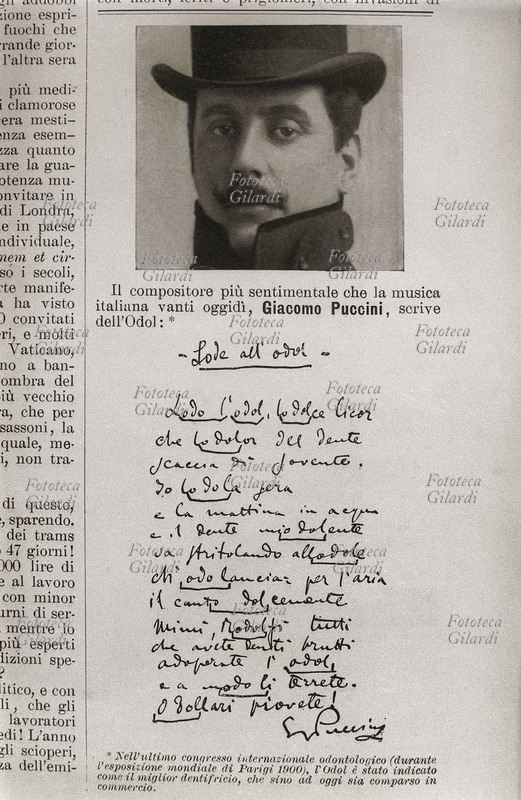 gli addobbi
zione espri-
fuochi che
rande gior-
l'altra sera
più medi-
i clamorose
cera mesti-
enza esem-
zza quanto
are la gua-
otenza mu-
onvitare in
di Londra,
e in paese
ndividuale,
nem et cir-
so i secoli,
rte manife-
a ha visto
0 convitati
eri, e molti
Vaticano,
no a ban-
ombra del
più vecchio
ra, che per
sassoni, la
quale, me-
i, non tra-
di questo,
e, sparendo.
dei trams
47 giorni!
000 lire di
e al lavoro
con minor
urni di ser-
mentre lo
più esperti
dizioni spe-
?
litico, e con
li, che gli
lavoratori
edi! L'anno
gli scioperi,
za dell'emi-
con morti, feriti e prigionieri, con invasioni di
Il compositore più sentimentale che la musica
italiana vanti oggidì, Giacomo Puccini, scrive
dell'Odol: *
- Lode all'odol -
Lodo l'odol, lodolce licor
che lodolor del dente
scaccia di sovente.
Io lodola sera
e la mattina in acqua
e il dente mio dolente
va stritolando allodole
ch'odo lanciar per l'aria
il canto dolcemente
Mimi, Rodolfi tutti
che avete denti brutti
adoperate l'odol,
e a modo li terrete.
O dollari piovete!
G. Puccini
* Nell'ultimo congresso internazionale odontologico (durante
l'esposizione mondiale di Parigi 1900), l'Odol è stato indicato
come il miglior dentifricio, che sino ad oggi sia comparso in
commercio.
Fototeca
Gilardi